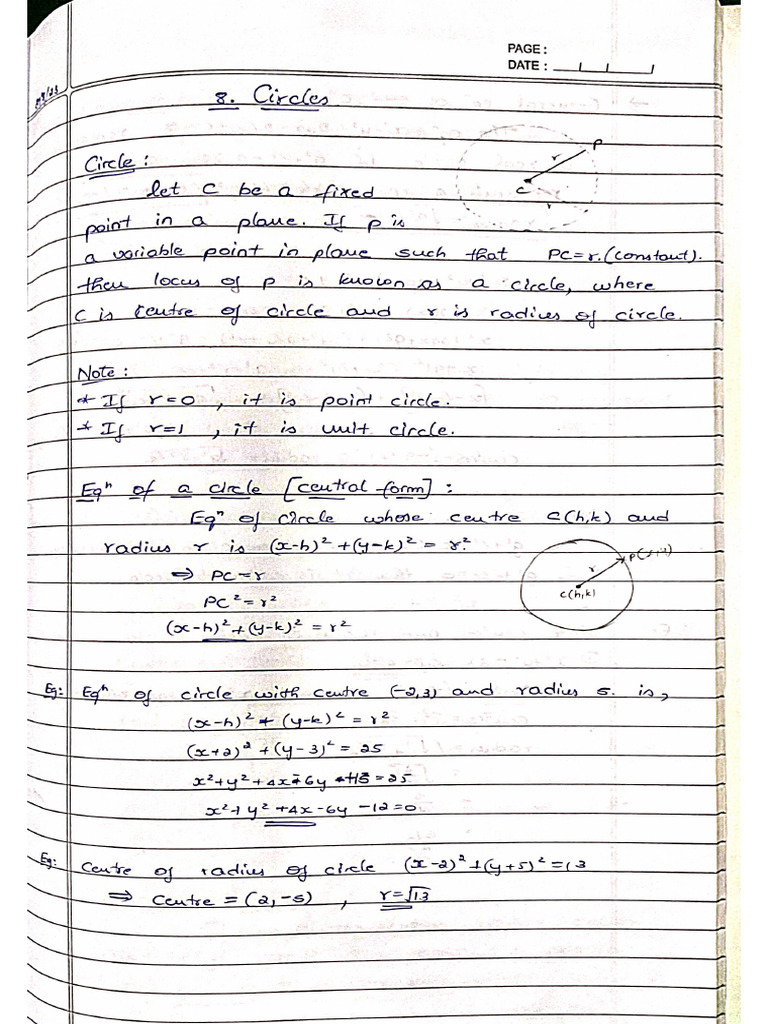 PAGE :
DATE :
8. Circles
P
r
C
r
Circle :
let C be a fixed
point in a plane. If p is
a variable point in plane such that PC=r.(constant).
then locus of p is known as a circle, where
C is centre of circle and r is radius of circle.
Note :
* If r=0 , it is point circle.
* If r=1 , it is unit circle.
Eqⁿ of a circle [central form] :
Eqⁿ of circle whose centre C(h,k) and
radius r is (x-h)² + (y-k)² = r².
⇒ PC=r
PC² = r²
(x-h)² + (y-k)² = r²
r
P(x,y)
C(h,k)
Eg: Eqⁿ of circle with centre (-2,3) and radius 5. is,
(x-h)² + (y-k)² = r²
(x+2)² + (y-3)² = 25
x²+y²+4x-6y+13=25
x²+y²+4x-6y-12=0
Eg: Centre of radius of circle (x-2)²+(y+5)²=13
⇒ Centre = (2,-5) , r=√13